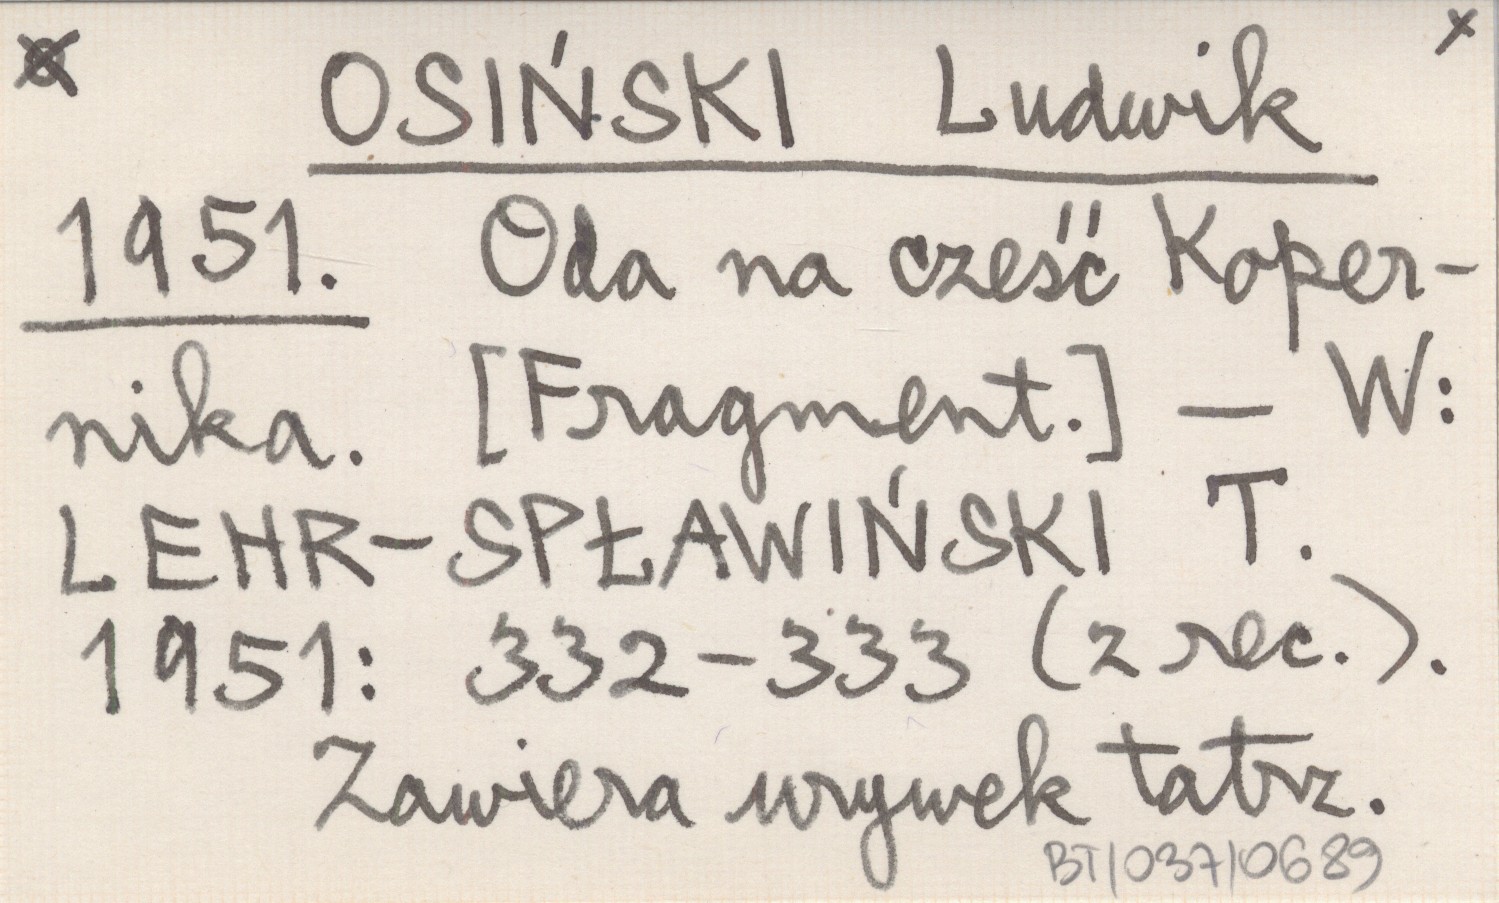 OSIŃSKI Ludwik
1951. Oda na cześć Koper-
nika. [Fragment.] — W:
LEHR-SPŁAWIŃSKI T.
1951: 332-333 (z rec.).
Zawiera urywek tatrz.
BT/037/0689